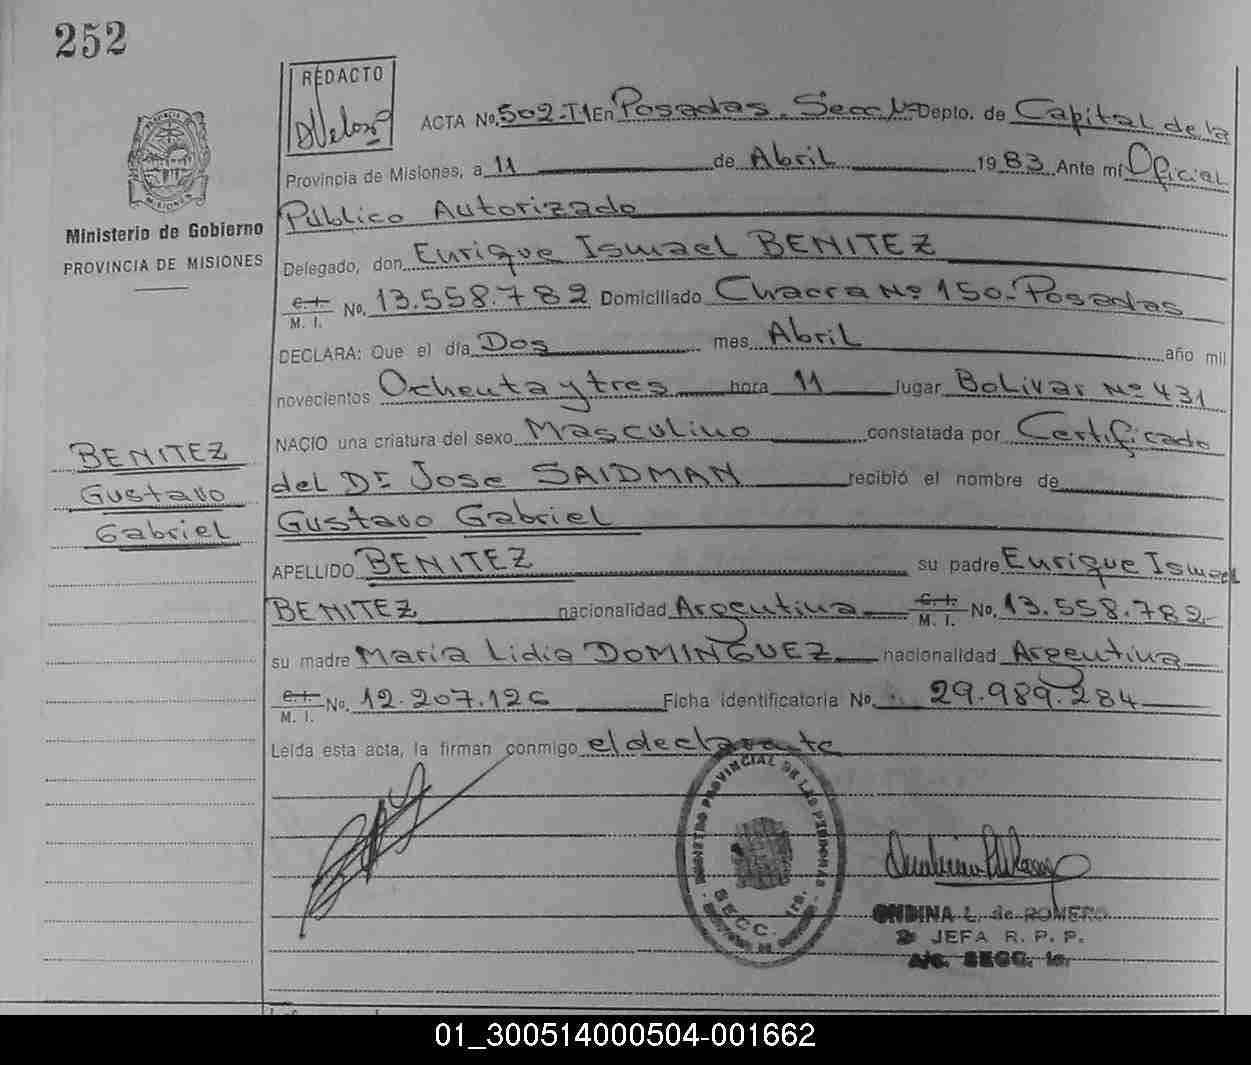 252
REDACTO
DVeloso
ACTA No. 502-T1 En Posadas. Secc. 1ª Depto. de Capital de la
Provincia de Misiones, a 11 de Abril 1983 Ante mí Oficial
Público Autorizado
Ministerio de Gobierno
PROVINCIA DE MISIONES
Delegado, don Enrique Ismael BENITEZ
C.I.
M. I. No. 13.558.782 Domiciliado Chacra Nº 150-Posadas
DECLARA: Que el día Dos mes Abril año mil
novecientos Ochenta y tres hora 11 lugar Bolivar Nº 431
NACIO una criatura del sexo Masculino constatada por Certificado
del Dr Jose SAIDMAN recibió el nombre de
BENITEZ
Gustavo
Gabriel
Gustavo Gabriel
APELLIDO BENITEZ su padre Enrique Ismael
BENITEZ nacionalidad Argentina C.I.
M. I. No. 13.558.782-
su madre Maria Lidia DOMINGUEZ nacionalidad Argentina
C.I.
M. I. No. 12.207.126 Ficha identificatoria No. 29.989.284
Leída esta acta, la firman conmigo el declarante
REGISTRO PROVINCIAL DE LAS PERSONAS
SECC. 1ra.
ONDINA L. de ROMERO
JEFA R. P. P.
A/C. SECC. 1a.
01_300514000504-001662